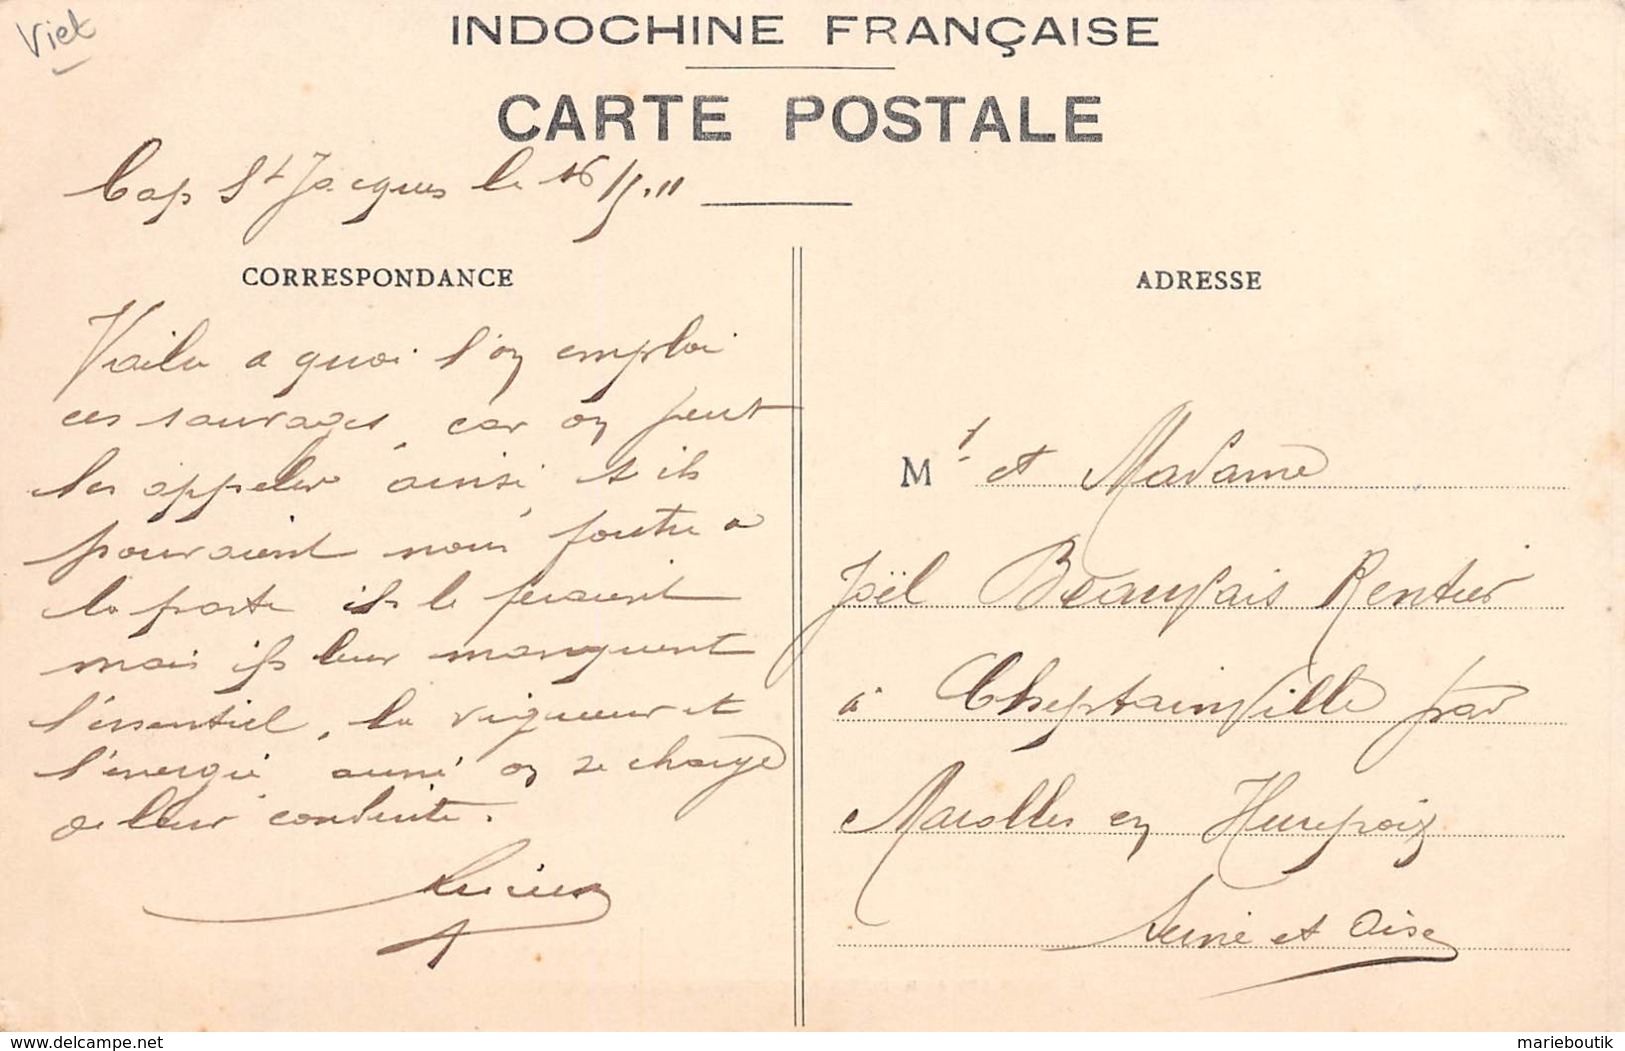 Viet
INDOCHINE FRANÇAISE
CARTE POSTALE
Cap St Jacques le 16/5.11
CORRESPONDANCE
Voila a quoi l'on emploi
ces sauvages, car on peut
les appeler ainsi, s'ils
pourraient nous foutre a
la porte ils le feraient
mais ils leur manquent
l'essentiel, la vigueur et
l'énergie aussi on se charge
de leur conduite.
Lucien
ADRESSE
Mr et Madame
Joël Beaufais Rentier
à Cheptainville par
Marolles en Hurepoix
Seine et Oise
delcampe.net
marieboutik